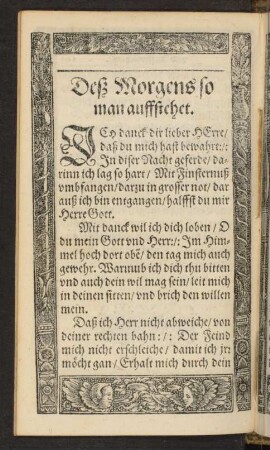 Deß Morgens so
man auffstehet.
ICh danck dir lieber HErre/
daß du mich hast bewahrt:/:
In diser Nacht geferde/ da-
rinn ich lag so hart/ Mit Finsternuß
vmbfangen/ darzu in grosser not/ dar
auß ich bin entgangen/ halffst du mir
Herre Gott.
Mit danck wil ich dich loben/ O
du mein Gott vnd Herr:/: Im Him-
mel hoch dort obẽ/ den tag mich auch
gewehr. Warumb ich dich thu bitten
vnd auch dein wil mag sein/ leit mich
in deinen sitten/ vnd brich den willen
mein.
Daß ich Herr nicht abweiche/ von
deiner rechten bahn:/: Der Feind
mich nicht erschleiche/ damit ich jrꝛ
möcht gan/ Erhalt mich durch dein